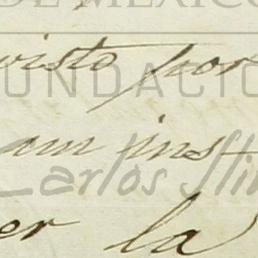 DE MÉXICO
visto por
FUNDACIÓ
am ins-
Carlos Slim
er la